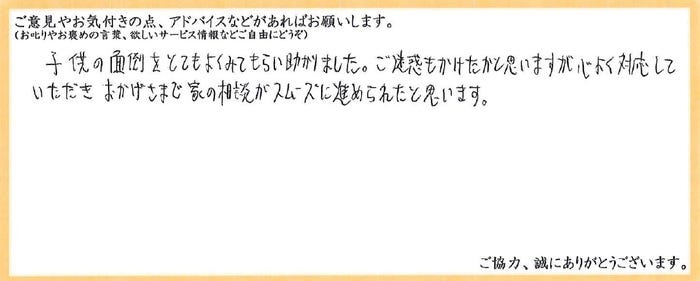 ご意見やお気付きの点、アドバイスなどがあればお願いします。
(お叱りやお褒めの言葉、欲しいサービス情報などご自由にどうぞ)
子供の面倒をとてもよくみてもらい助かりました。ご迷惑もかけたかと思いますが心よく対応して
いただき おかげさまで家の相談がスムーズに進められたと思います。
ご協力、誠にありがとうございます。